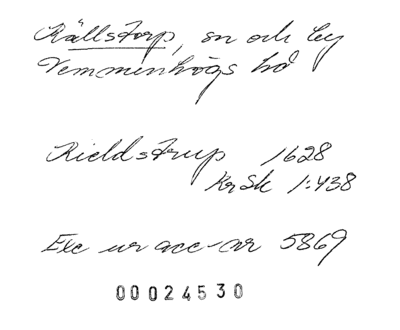 Källstorp, sn och by
Vemmenhögs hd
Kieldstrup 1628
KrSk 1:438
Exc ur acc-nr 5869
00024530